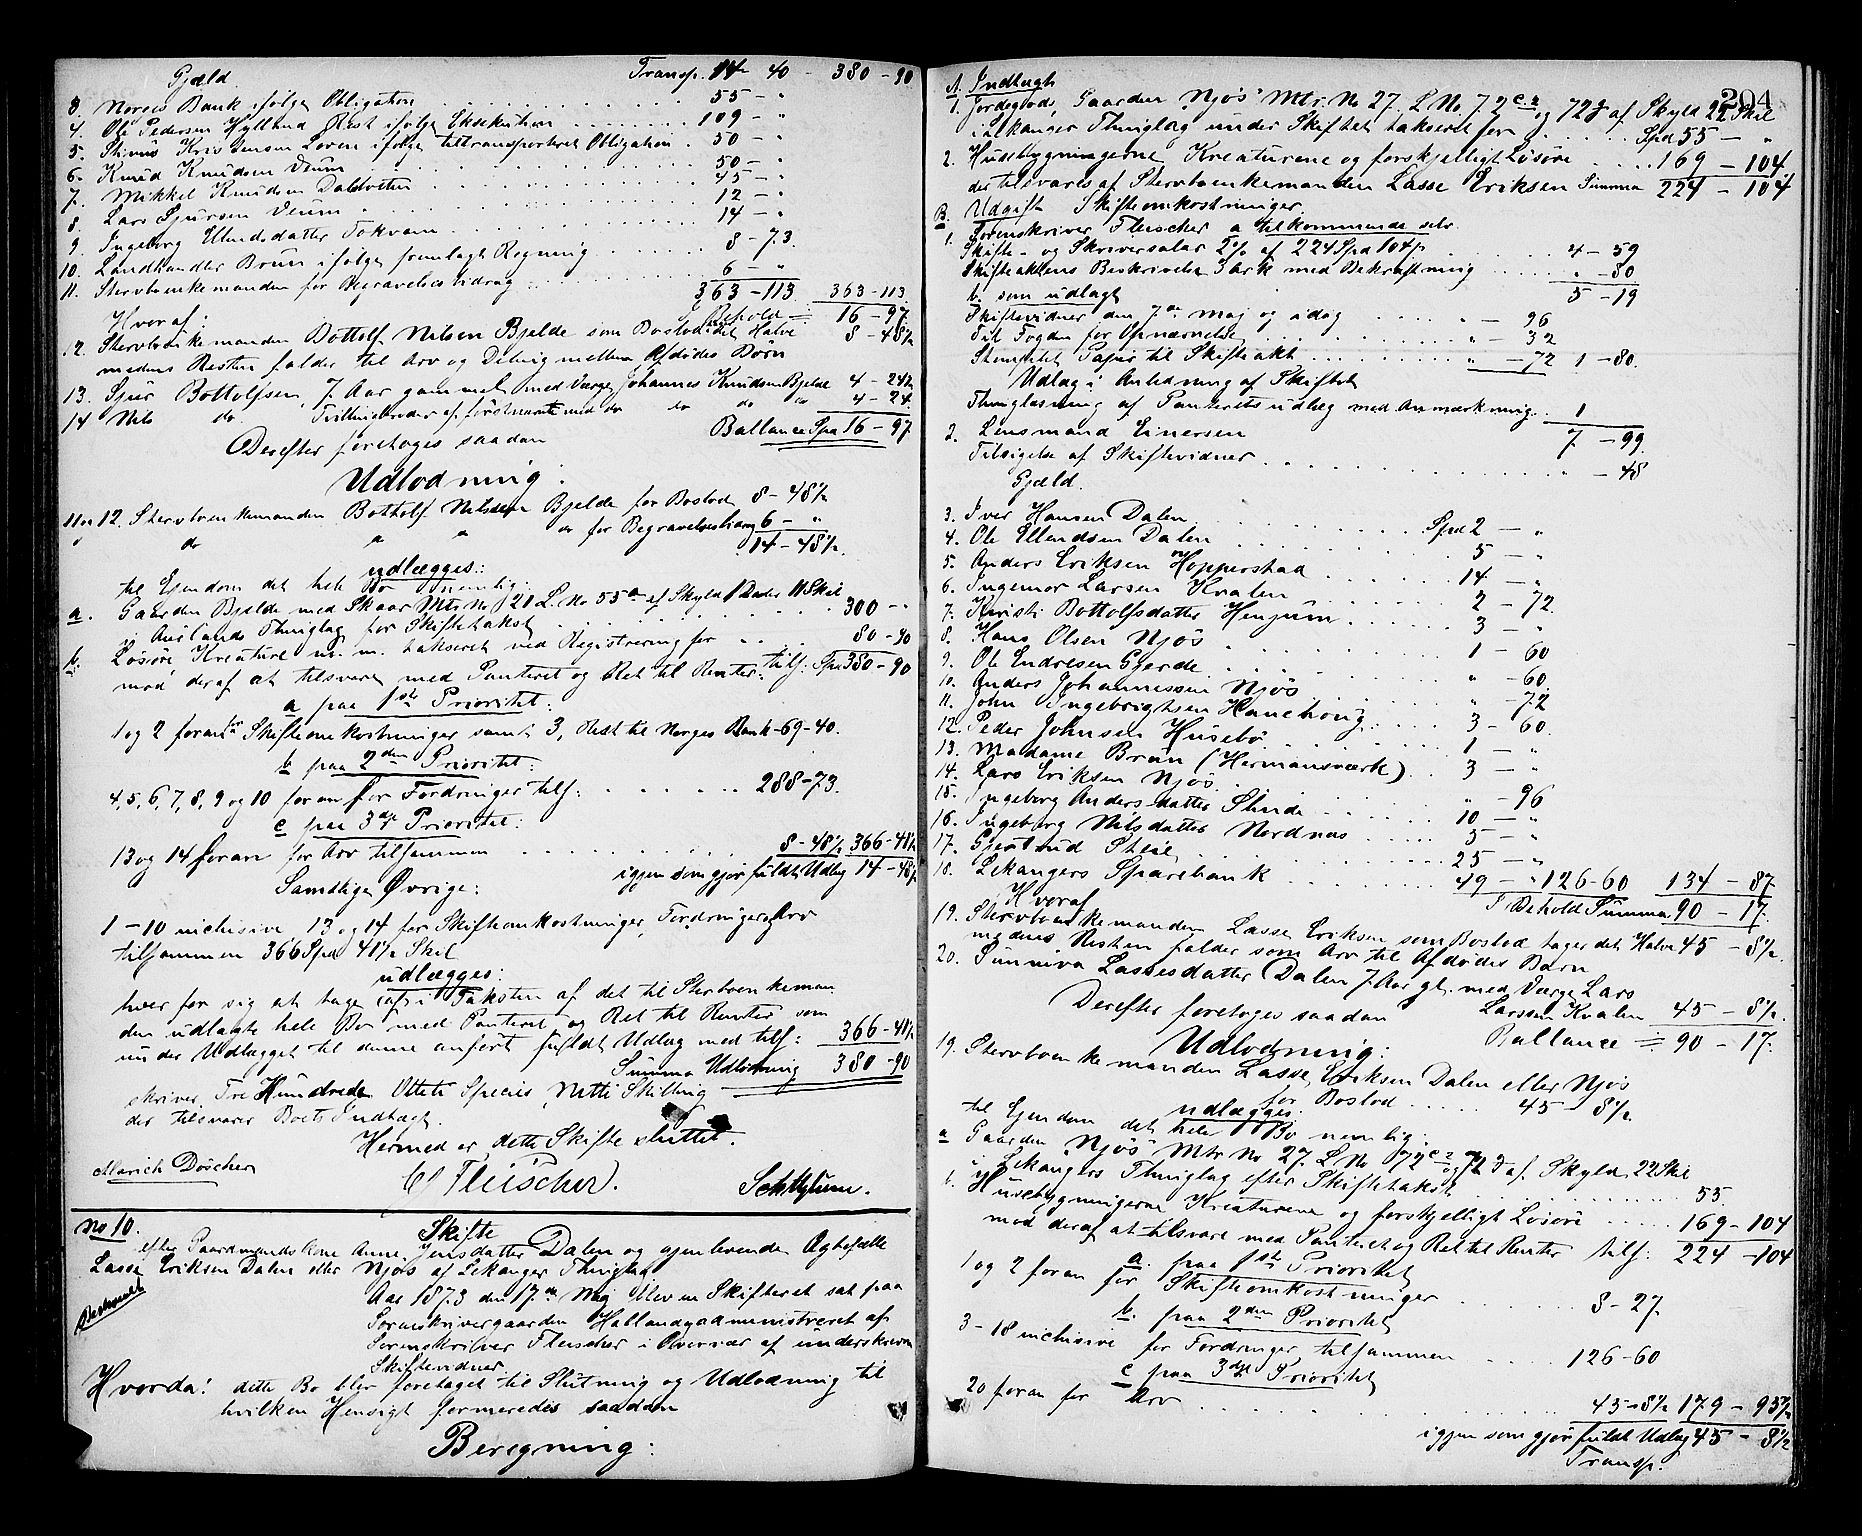 Gjæld. Transp. 14 40 - 380-90
3. Norges Bank ifølge Obligation 55 - "
4. Ole Pedersen Hylland Rest ifølge Eksekution 109 - "
5. Kristensen ifølge tiltransporteret Obligation 50 - "
6. Knud Knudsen Veum 50 - "
7. Mikkel Knudsen 45 - "
8. Lars Sjursen Veum 12 - "
9. Ingeborg Ellendsdatter Tokvam 14 - "
10. Landhandler Brun ifølge fremlagt Regning 8-73.
11. Stervboenkemanden for Begravelsesbidrag 6 - "
363-113 363-113
Hvoraf: Behold = 16-97
12. Stervboenkemanden Bottolf Nilsen Bjelde som Boslod det Halve 8-48½
medens Resten falder til Arv og Deling mellem Afdødes Børn
13. Sjur Bottolfsen, 7 Aar gammel med Værge Johannes Knudsen Bjelde 4-24½
14 Nils do. Tvillingbroder af førstnævnte med do do do do 4-24.
Ballance Spd 16-97
Derefter foretoges saadan
Udlodning.
11 og 12. Stervboenkemanden Bottolf Nilsen Bjelde for Boslod 8-48½
do " " do for Begravelsesbidrag 6 - "
14-48½.
udlægges:
til Ejendom det hele Bo nemlig:
a. Gaarden Bjelde med Skaar Mtr. No 121 L. No 55a af Skyld 1 Daler 11 Skil
i Aurlands Thinglag for Skiftetakst 300 - "
b. Løsøre Kreature m. m. takseret ved Registrering for 80-90
mod deraf at tilsvare med Panteret og Ret til Renter: tils: Spd 380-90
a paa 1ste Prioritet:
1 og 2 foran for Skifteomkostninger samt 3, Rest til Norges Bank 69-40.
b paa 2den Prioritet:
4, 5, 6, 7, 8, 9 og 10 foran for Fordringer tils: 288-73.
c paa 3die Prioritet:
13 og 14 foran for Arv tilsammen 8-48½ 366-41½
igjen som gjør fuldt Udlæg 14-48½
Samtlige Øvrige:
1-10 inclusive, 13 og 14 for Skifteomkostninger, Fordringer og Arv
tilsammen 366 Spd 41½ Skil
udlægges:
hver for sig at tage i Taksten af det til Stervboenkeman
den udlagte hele Bo med Panteret og Ret til Renter som
under Udlægget til denne anført fuldt Udlæg med tils: 366-41½
Summa Udlodning 380-90
skriver Tre Hundrede Otteti Species Nitti Skilling
der tilsvarer Boets Indtægt.
Hermed er dette Skifte sluttet.
Alarich Döscher C Fleischer.
No 10. Skifte
efter Gaardmands Kone Anne Jensdatter Dalen og gjenlevende Ægtefælle
Lasse Eriksen Dalen eller Njøs af Lekanger Thinglag
Aar 1873 den 17de Maj blev en Skifteret sat paa
Sorenskrivergaarden Halland administreret af
Sorenskriver Fleischer i Overvær af underskrevne
Skiftevidner
Beskrevet
Hvorda: dette Bo blev foretaget til Slutning og Udlodning til
hvilken Hensigt formeredes saadan
Beregning:
204
A. Indtægt
1. Jordegods, Gaarden "Njøs" Mtr. No 27. L No 72 og 72 af Skyld 22 Skil
i Lekanger Thinglag under Skiftet takseret for Spd 55 - "
2. Husebygningerne Kreaturene og forskjelligt Løsøre 169-104
der tilsvares af Stervboenkemanden Lasse Eriksen Summa 224-104
B. Udgift Skifteomkostninger
1. Sorenskriver Fleischer a tilkommende selv.
Skifte- og Skriversalær 2% af 224 Spd 104 4-59
Skifteaktens Beskrivelse 3 ark med Bekræftning " -80
5-19
b. som udlagt
Skiftevidner den 7de Maj og idag " - 96
Til Fogden for " - 32
Stemplet Papir til Skifteakt " -72 1-80.
Udlæg i Anledning af Skiftet
Thinglæsning af Panterets udlæg med Anmærkning 1
7-99
2. Lensmand Einersen
Tilsigelse af Skiftevidner " -48
Gjæld.
3. Iver Hansen Dalen Spd 2 - "
4. Ole Ellendsen Dalen 5 - "
5. Anders Eriksen Hopperstad 14 - "
6. Ingemor Larsen Kvalen 2-72
7. Kristi Bottolfsdatter Henjum 3 - "
8. Hans Olsen Njøs 1-60
9. Ole Endresen Gjerde " -60.
10. Anders Johannessen Njøs " -72
11. John Ingebrigtsen Hanehoug 3-60.
12. Peder Johnsen Husebø 1 - "
13. Madame Brun (Hermansværk) 3 - "
14. Lars Eriksen Njøs " -96
15. Ingeborg Andersdatter Slinde 10 - "
16. Ingeborg Nilsdatter Nordnæs 5 - "
17. Gjertrud 25 - "
18. Lekangers Sparebank 49 - " 126-60 134-87
Hvoraf I Behold Summa 90-17.
19. Stervboenkemanden Lasse Eriksen som Boslod tager det Halve 45-8½
medens Resten falder som Arv til Afdødes Barn
20. Sunniva Lassesdatter Dalen 7 Aar gl. med Værge Lars
Larssen Kvalen 45-8½.
Derefter foretoges saadan Ballance = 90-17.
Udlodning:
19. Stervboenkemanden Lasse Eriksen Dalen eller Njøs
for Boslod 45-8½
udlægges:
til Ejendom det hele Bo nemlig:
a Gaarden "Njøs" Mtr No 27. L No 72 og 72 af Skyld 22 Skil
i Lekangers Thinglag efter Skiftetakst 55.
b. Husebygningerne Kreaturene og forskjelligt Løsøre 169-104
mod deraf at tilsvare med Panteret og Ret til Renter tils: 224-104
a. paa 1ste Prioritet
1 og 2 foran for Skifteomkostninger 8-27
b. paa 2den Prioritet
3-18 inclusive for Fordringer tilsammen 126-60
c paa 3die Prioritet
20 foran for Arv 45-8½ 179-95½
igjen som gjør fuldt Udlæg 45-8½
Transp.